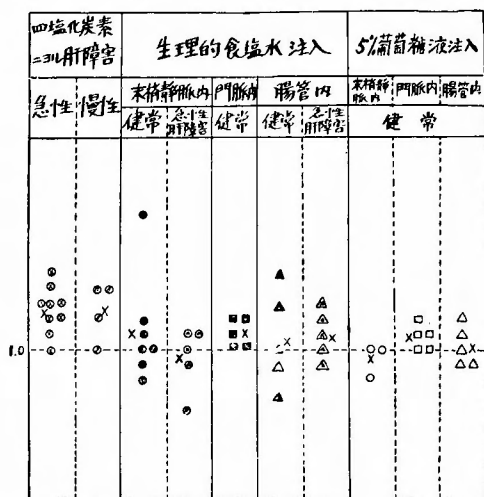 四塩化炭素
ニヨル肝障害
生理的食塩水注入
5%葡萄糖液注入
急性
慢性
末梢静脈内
門脈内
腸管内
末梢静
脈内
門脈内
腸管内
健常
急性
肝障害
健常
健常
急性
肝障害
健常
1.0